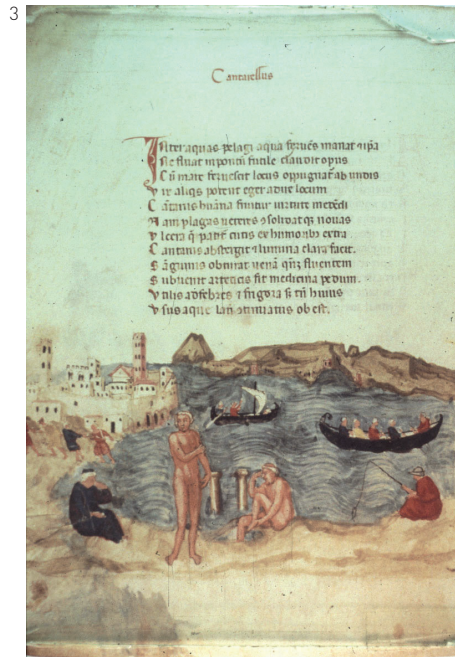 3
Cantarellus
Inter aquas pelagi aqua fervēs manat ī ipā
Ne fluat in pontū futile claudit opus
Cū mare fervescit locus oppugnat ab undis
Vix aliq̄s poterit eger adire locum
Cātaris hūana fruitur virtute
Nam plagas veteres solidat qȝ novas
Vlcera q̄ patit̄ cutis ex humoribȝ extra
Cantarus abstergit lumina clara facit
Sāguinis obturat venā fluentem
Subvenit artericis fit medicina pedum.
Vtilis ad febres frigora si tn̄ huius
Vsus aque ob est.